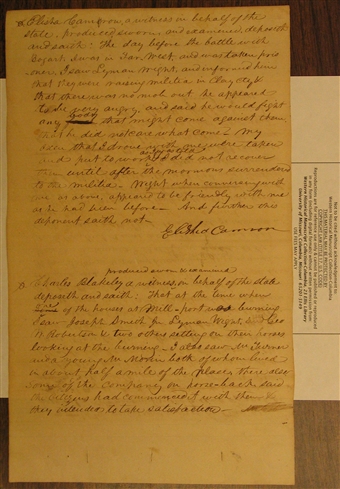 Elisha Camron, a witness in behalf of the
state, produced sworn, and examined, deposeth
and saith: The day before the battle with
Bogart, I was in Far West, and was taken pris
oner, I saw Lyman Wight, and informed him
that they were raising militia in Clay, &
that there was no mob out. He appeared
to be very angry, and said he would fight
any body that might come against them,
he did not care what come. My
that I drove with me were taken
and put to work, & did not recover
them until after the mormons surrendered
to the militia. Wight when conversing with
me as above, appeared to be friendly with me
as he had been before. And further this
deponent saith not.
Elisha Camron
produced sworn & examined
Charles Blakely a witness, on behalf of the state
deposeth and saith: That at the time when
one of the houses at Mill-port was burning
I saw Joseph Smith Jr Lyman Wight, & Geo
W Robertson & two others setting on their horses
looking at the burning. I also saw Mr Turner
and a young Mr Morin both of whom lived
in about half a mile of the place; there also
some of the company on horse-back said
the citizens had commenced it with them &
they intended to take satisfaction.
Not to be cited without acknowledgement to:
Western Historical Manuscript Collection Columbia
COPYRIGHT LAW (U.S. 17)